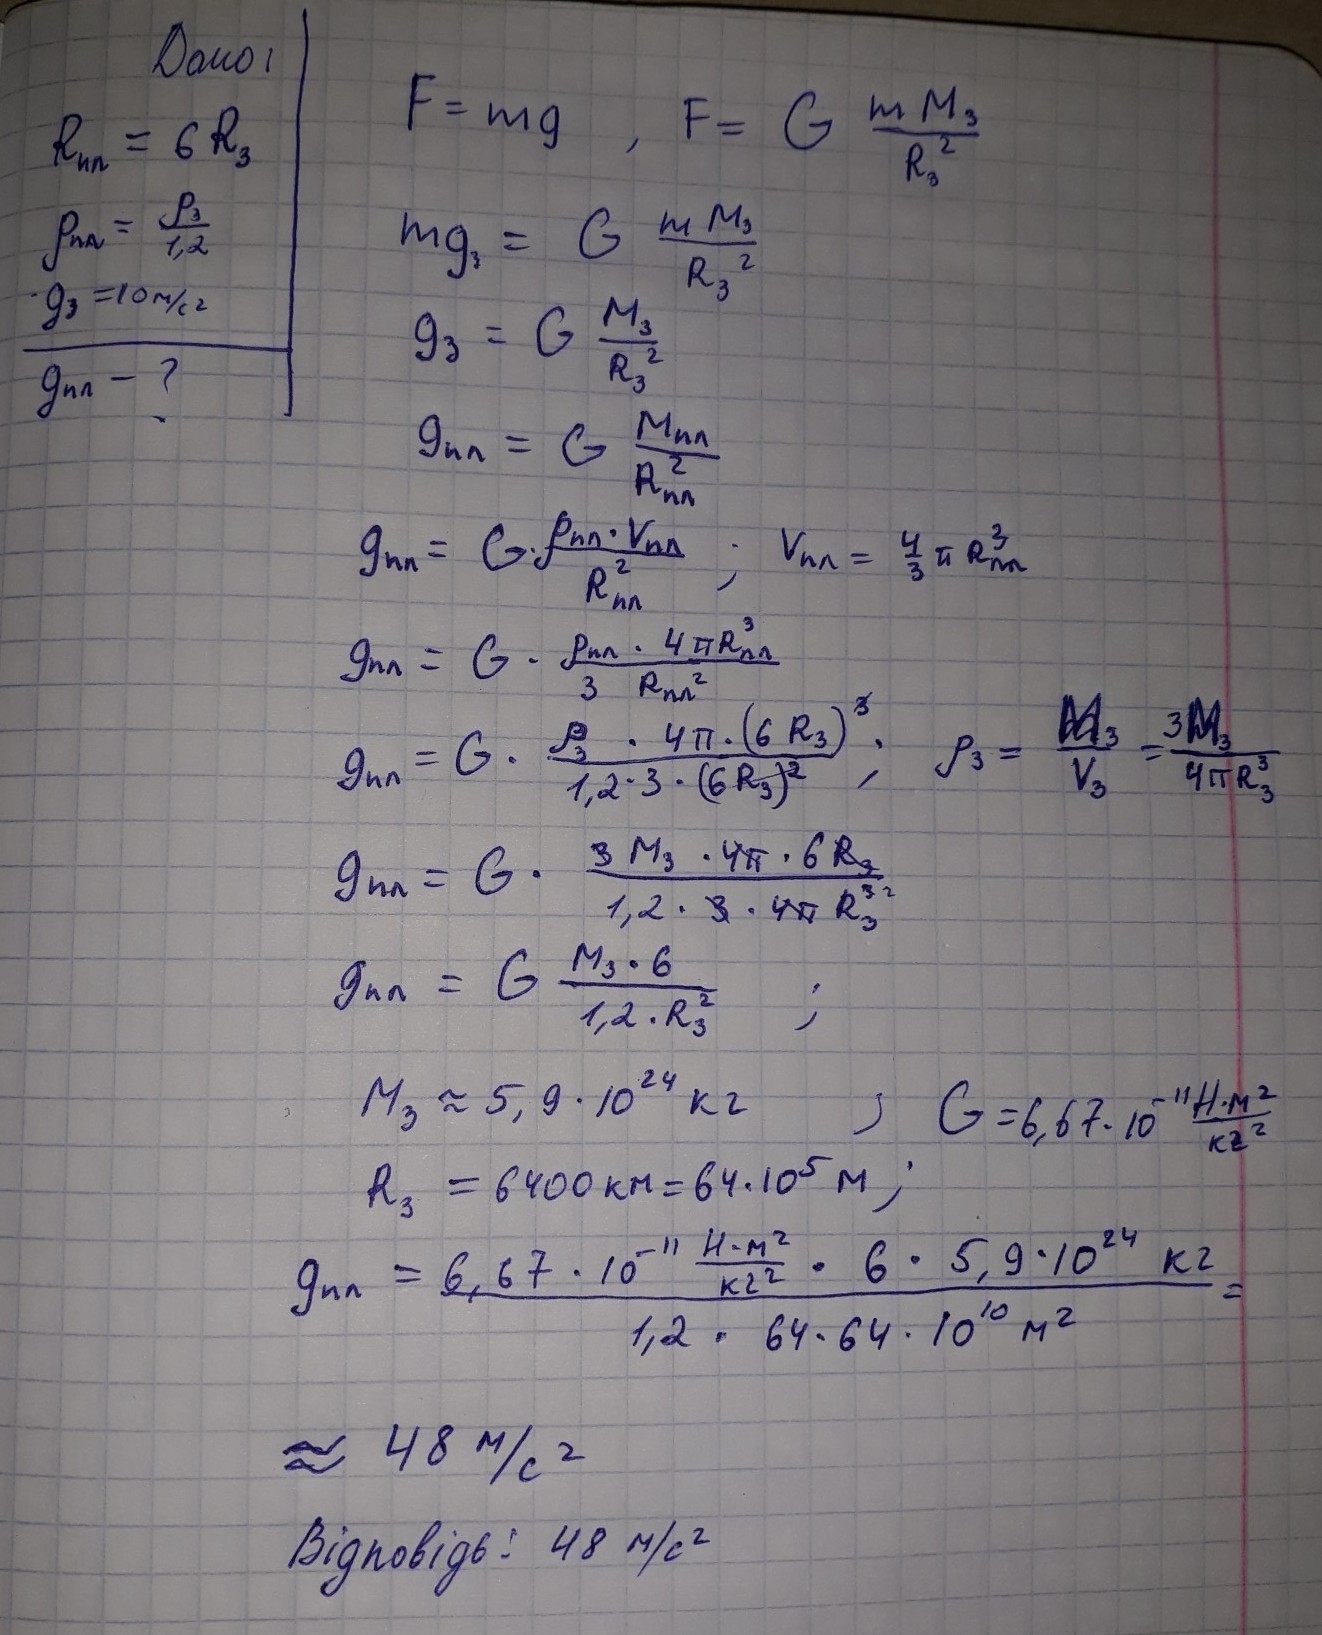 Дано:
Rпл = 6 Rз
ρпл = ρз/1,2
gз = 10 м/с²
gпл – ?
F = mg , F = G mMз/Rз²
mgз = G mMз/Rз²
gз = G Mз/Rз²
gпл = G Mпл/Rпл²
gпл = G · ρпл · Vпл/Rпл² ; Vпл = 4/3 π Rпл³
gпл = G · ρпл · 4πRпл³/3 Rпл²
gпл = G · ρз · 4π · (6 Rз)³/1,2 · 3 · (6Rз)² ; ρз = Mз/Vз = 3Mз/4πRз³
gпл = G · 3 Mз · 4π · 6 Rз/1,2 · 3 · 4π Rз³ ²
gпл = G Mз · 6/1,2 · Rз² ;
Mз ≈ 5,9 · 10²⁴ кг ; G = 6,67 · 10⁻¹¹ Н·м²/кг²
Rз = 6400 км = 64 · 10⁵ м ;
gпл = 6,67 · 10⁻¹¹ Н·м²/кг² · 6 · 5,9 · 10²⁴ кг/1,2 · 64 · 64 · 10¹⁰ м² =
≈ 48 м/с²
Відповідь: 48 м/с²